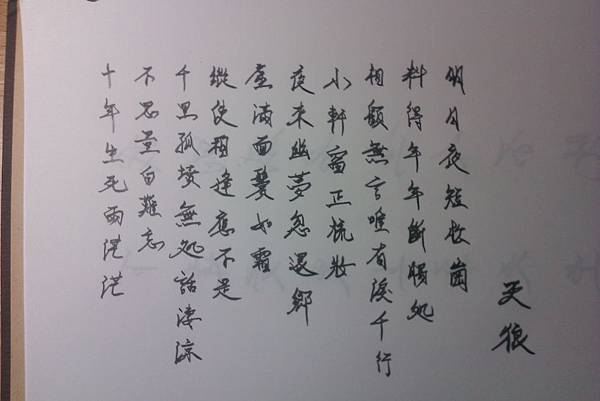 十年生死兩茫茫
不思量自難忘
千里孤墳無処話淒涼
縱使相逢應不是
塵滿面鬢如霜
夜来幽夢忽還鄉
小軒窗正梳妝
相顧無言唯有淚千行
料得年年斷腸処
明月夜短松崗
天狼